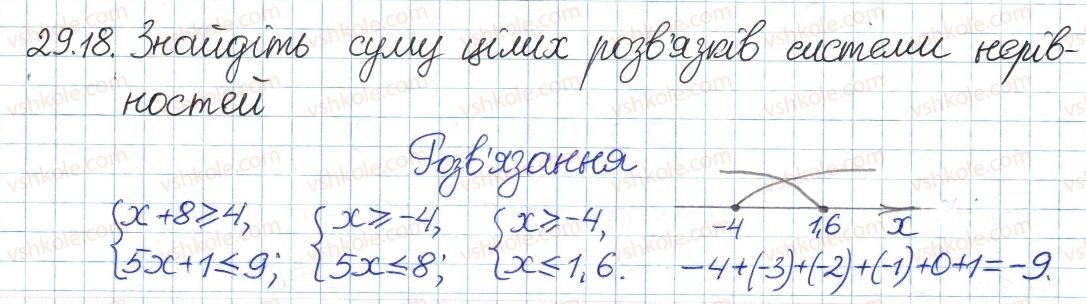 29.18. Знайдіть суму цілих розв'язків системи нерів-
ностей
Розв'язання
{x+8≥4, {x≥-4, {x≥-4,
{5x+1≤9; {5x≤8; {x≤1,6.
-4 1,6 x
-4+(-3)+(-2)+(-1)+0+1=-9.
vshkole.com